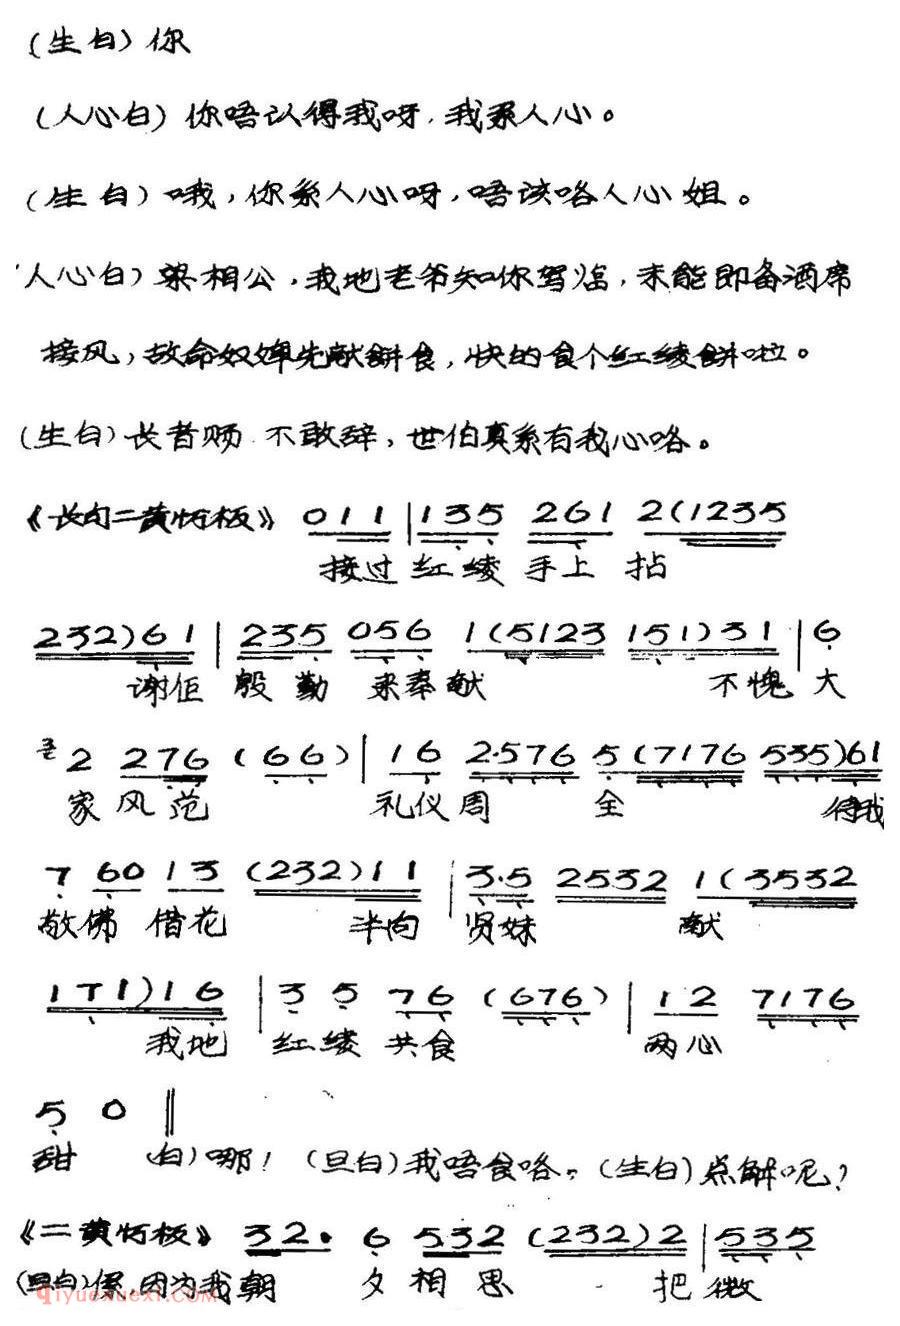 (生白)你
(人心白)你唔认得我呀,我系人心。
(生白)哦,你系人心呀,唔该咯人心姐。
人心白)梁相公,我地老爷知你驾临,未能即备酒席
接风,故命奴婢先献餅食,快的食个红绫餅啦。
(生白)长者赐 不敢辞,世伯真系有我心咯。
《长句二黄慢板》 0 1 1 | 1 3 5 2 6 1 2 (1 2 3 5
接过 红绫 手上 拈
2 3 2) 6 1 | 2 3 5 0 5 6 1 (5 1 2 3 1 5 1) 3 1 | 6
谢佢 殷勤 来奉献 不愧 大
2 2 7 6 (6 6) | 1 6 2·5 7 6 5 (7 1 7 6 5 3 5) 6 1
家风范 礼仪周 全 待我
7 6 0 1 3 (2 3 2) 1 1 | 3·5 2 5 3 2 1 (3 5 3 2
敬佛 借花 半向 贤妹 献
1 7 1) 1 6 | 3 5 7 6 (6 7 6) | 1 2 7 1 7 6
我地 红绫 共食 两心
5 0 ‖
甜 (白)哪! (旦白)我唔食咯。(生白)点解呢?
《二黄慢板》 3 2· 6 5 3 2 (2 3 2) 2 | 5 3 5
(旦白)係,因为我朝 夕相思 把微
qiyuexuexi.com